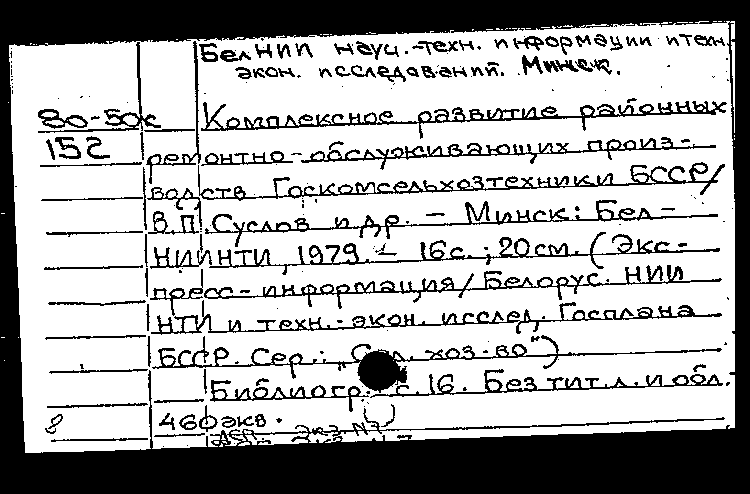 БелНИИ науч.-техн. информации и техн.
экон. исследований. Минск.
80-50к Комплексное развитие районных
152 ремонтно-обслуживающих произ-
водств Госкомсельхозтехники БССР/
В.П. Суслов и др. - Минск: Бел-
НИИНТИ, 1979. - 16с.; 20см. (Экс-
пресс-информация/Белорус. НИИ
НТИ и техн.-экон. исслед. Госплана
БССР. Сер.: „С л. хоз-во")
Библиогр.: с.16. Без тит.л. и обл.
8 460экв.